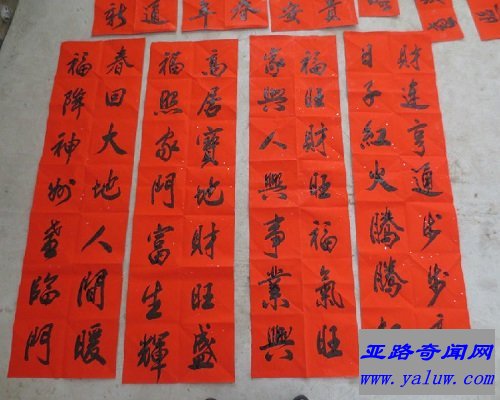 財運亨通步步
日子紅火騰騰
福旺財旺福氣旺
家興人興事業興
高居寶地財旺盛
福照家門富生輝
春回大地人間暖
福降神州喜臨門
亚路奇闻网
www.yaluw.com